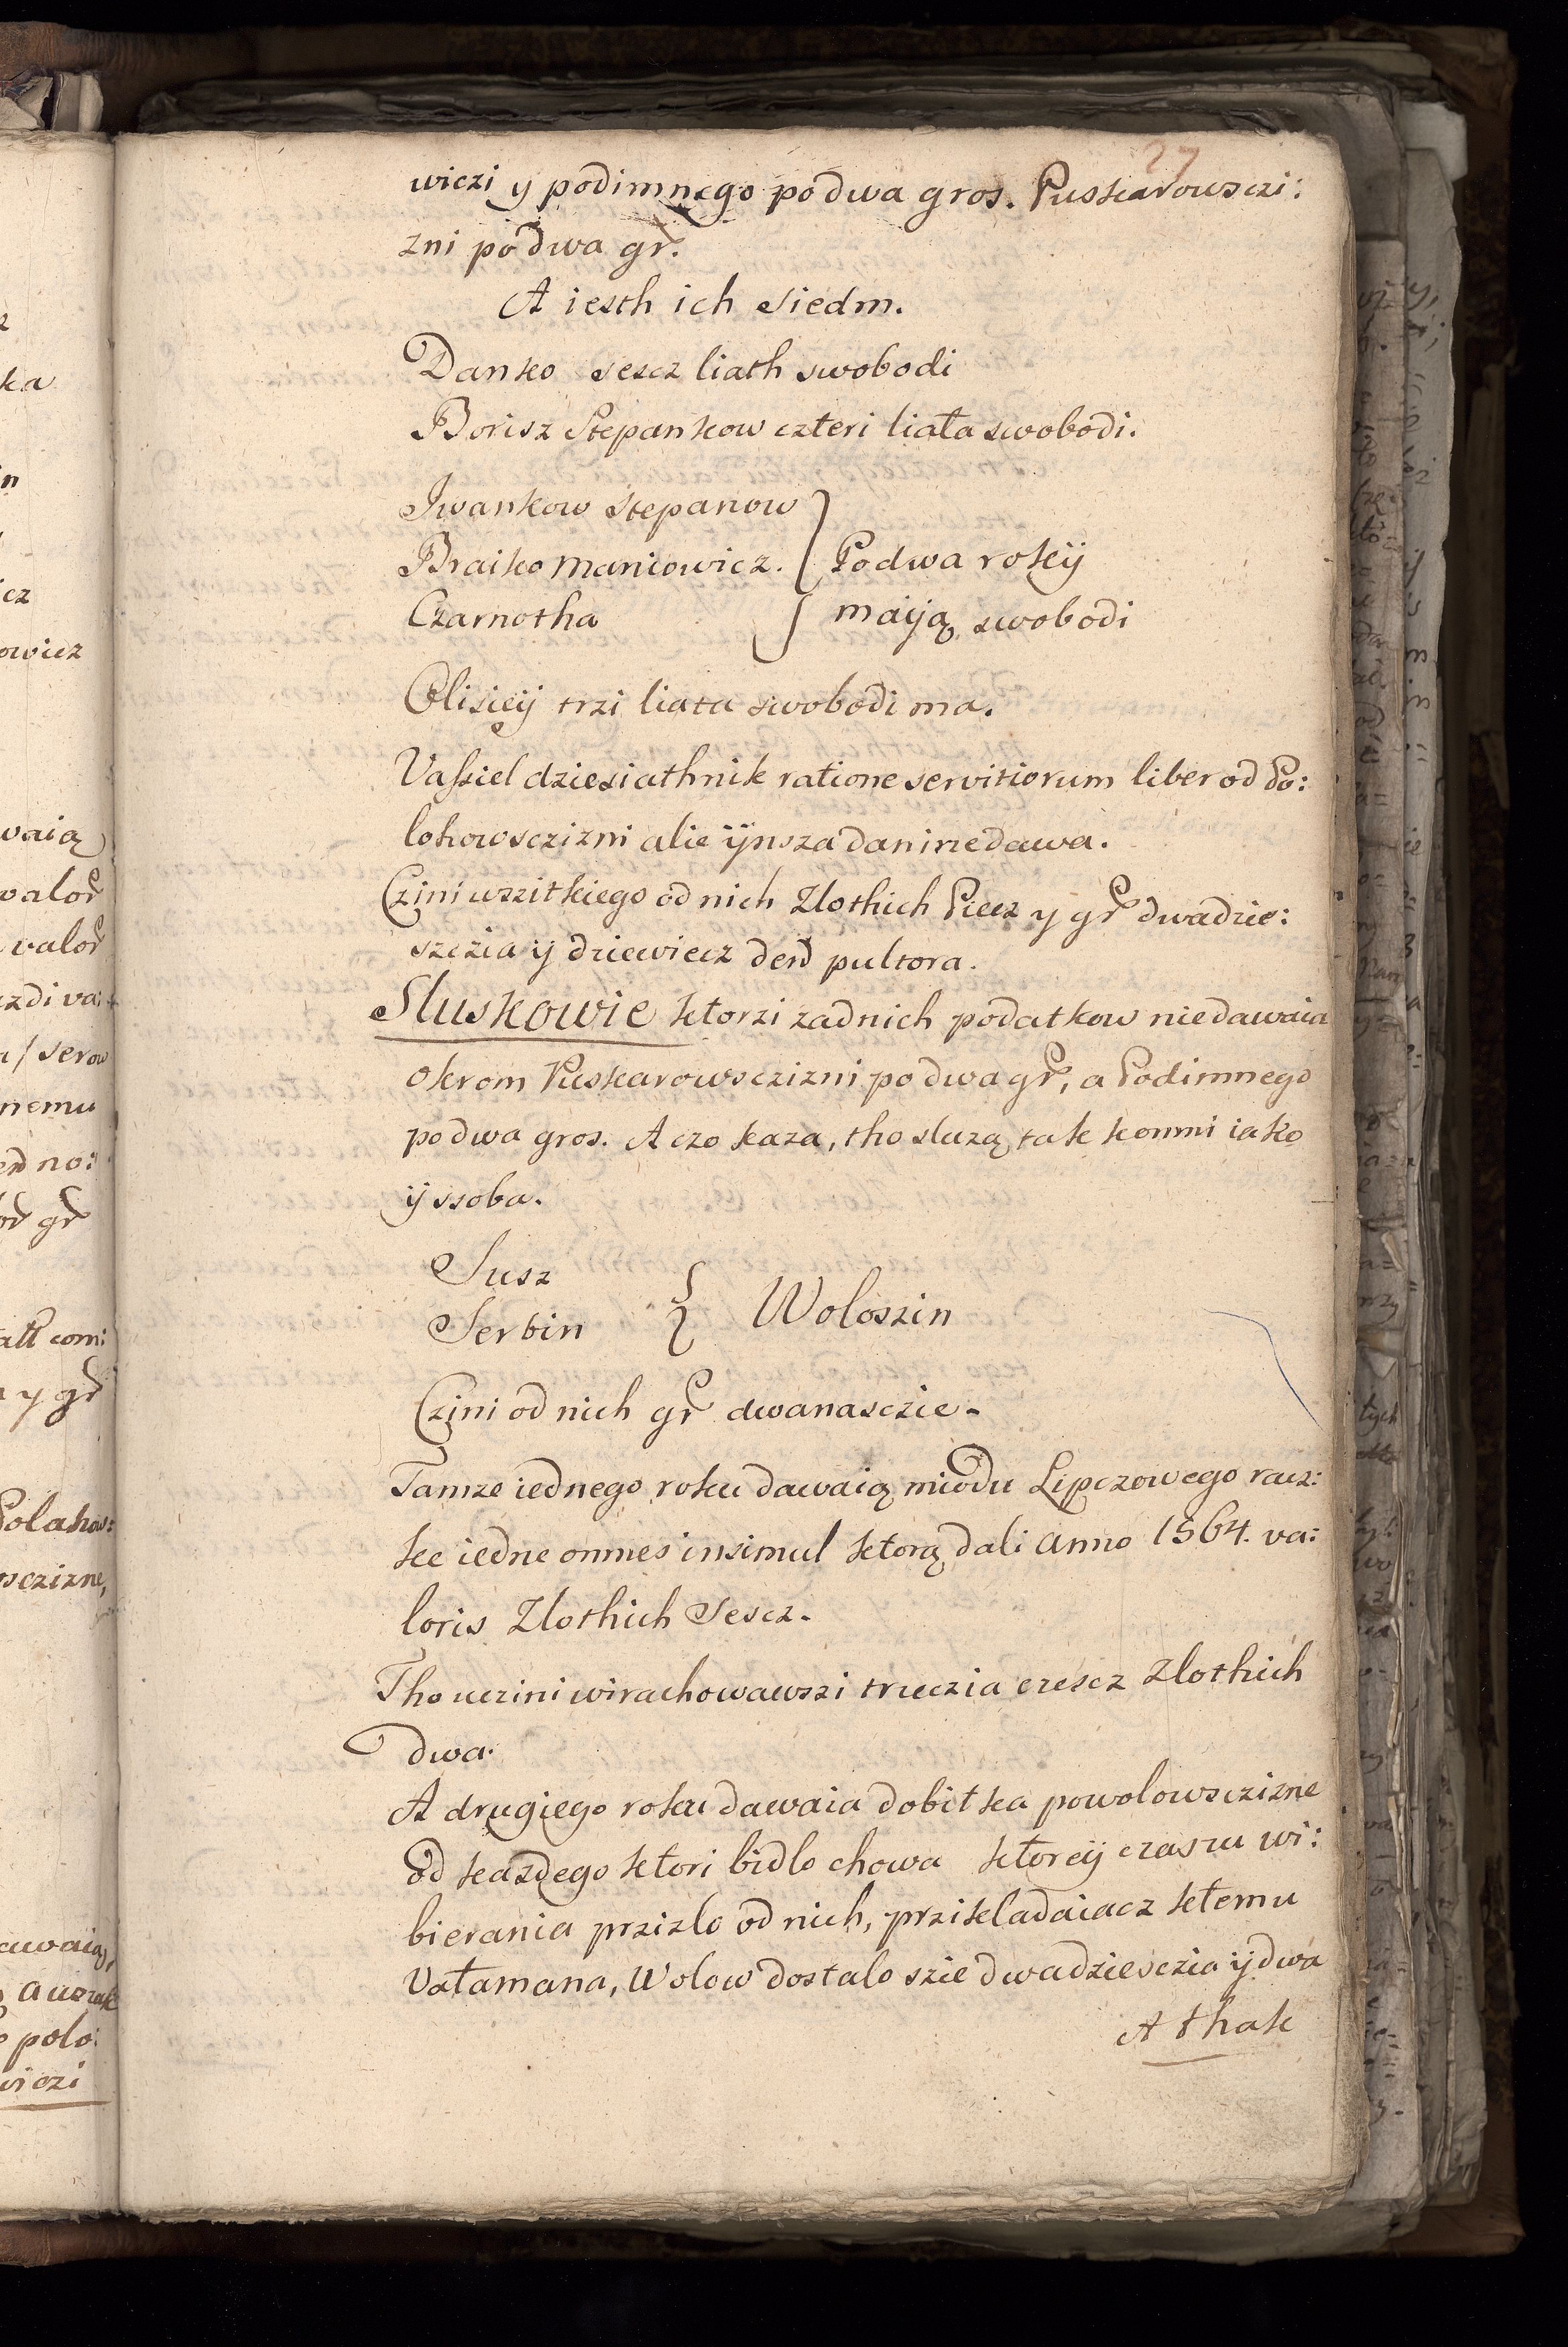 27
wiczi y podimnego po dwa gros. Puskarowsczi:
zni po dwa gr.
A iesth ich siedm.
Danko sescz liath swobodi
Borisz Stepankow czteri liata swobodi.
Iwankow Stepanow
Braiko Maniowicz. } Po dwa rokÿ
Czarnotha } maÿą swobodi
Olisieÿ trzi liata swobodi ma.
Vassiel dziesiathnik ratione servitiorum liber od Po:
lohowsczizni alie ÿnsza dani nedawa.
Czini wszitkiego od nich Zlothich Piecz y gr dwadzie:
szczia ÿ dziewiecz den pultora.
Sluskowie ktorzi zadnich podatkow nie dawaia
okrom Puskarowsczizni po dwa gr, a Podimnego
po dwa gros. A czo kaza, tho sluzą tak konmi iako
ÿ ssoba.
Susz
Serbin } Woloszin
Czini od nich gr dwanasczie.
Tamze iednego roku dawaią miodu Lipczowego racz:
ke iedne omnes insimul ktorą dali Anno 1564. va:
loris Zlothich Sescz.
Tho uczini wirachowawszi trzeczia czescz Zlothich
dwa.
A drugiego roku dawaia dobitka powolowsczizne
od kazdego ktori bidlo chowa ktoreÿ czaszu wi:
bierania przizlo od nich, prziklladaiacz ktemu
Vatamana, Wolow dostalo szie dwadziesczia ÿ dwa
A thak